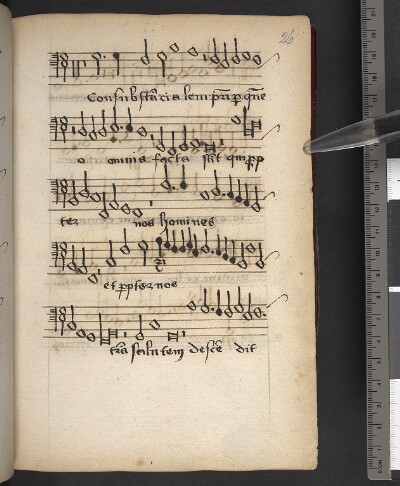 26
Consubstācialem pr̄i p̱ quē
o omnia facta sūt qui pp
ter nos homines
et ppter nos
trā salutem descē dit